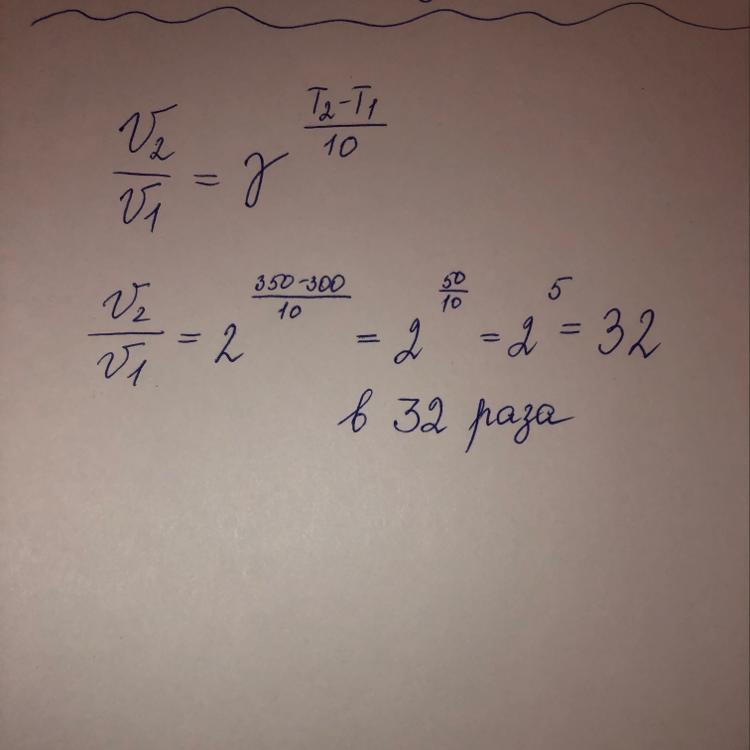 V₂/V₁ = γ^((T₂-T₁)/10)
V₂/V₁ = 2^((350-300)/10) = 2^(50/10) = 2^5 = 32
в 32 раза